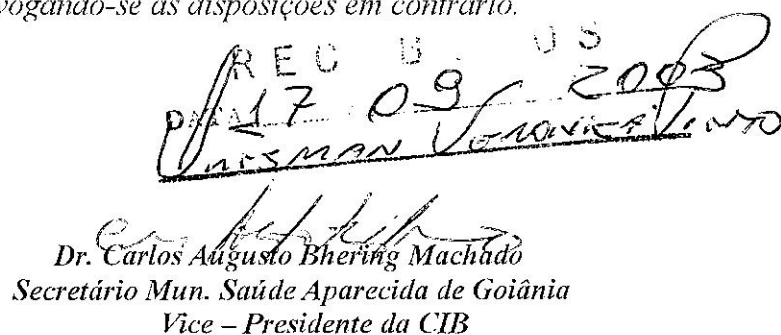 vogando-se as disposições em contrário.
REC B US
DATA 17 09 2003
Dr. Carlos Augusto Bhering Machado
Secretário Mun. Saúde Aparecida de Goiânia
Vice – Presidente da CIB